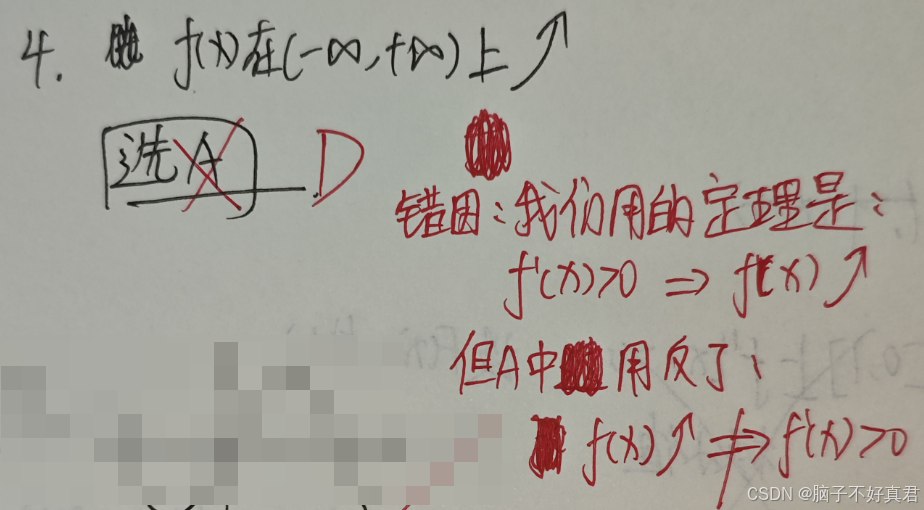 4. f(x)在(-∞,+∞)上↗
选A D
错因:我们用的定理是:
f'(x)>0 ⇒ f(x)↗
但A中用反了:
f(x)↗ ⇏ f'(x)>0
CSDN @脑子不好真君